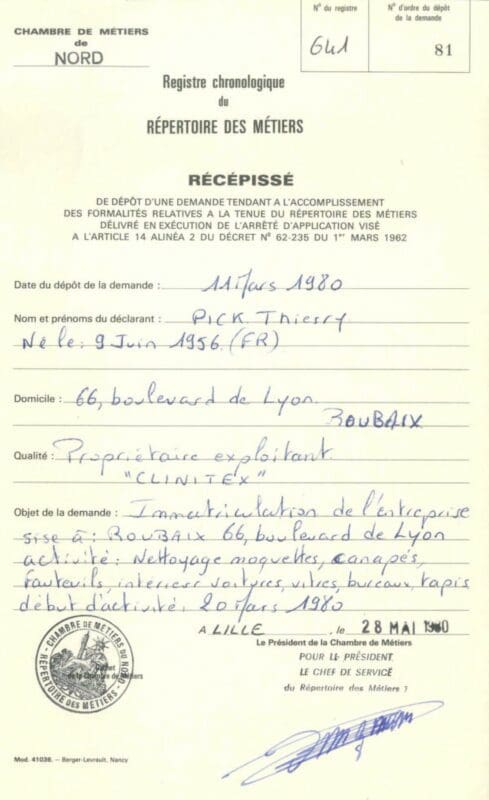 CHAMBRE DE MÉTIERS
de
NORD
N° du registre
641
N° d'ordre du dépôt
de la demande
81
Registre chronologique
du
RÉPERTOIRE DES MÉTIERS
RÉCÉPISSÉ
DE DÉPÔT D'UNE DEMANDE TENDANT A L'ACCOMPLISSEMENT
DES FORMALITÉS RELATIVES A LA TENUE DU RÉPERTOIRE DES MÉTIERS
DÉLIVRÉ EN EXÉCUTION DE L'ARRÊTÉ D'APPLICATION VISÉ
A L'ARTICLE 14 ALINÉA 2 DU DÉCRET N° 62-235 DU 1er MARS 1962
Date du dépôt de la demande : 11 Mars 1980
Nom et prénoms du déclarant : PICK Thierry
Né le : 9 Juin 1956 (FR)
Domicile : 66, boulevard de Lyon
ROUBAIX
Qualité : Propriétaire exploitant
"CLINITEX"
Objet de la demande : Immatriculation de l'entreprise
sise à : ROUBAIX 66, boulevard de Lyon
activité : Nettoyage moquettes, canapés,
fauteuils, intérieur voitures, vitres, bureaux, tapis
début d'activité : 20 Mars 1980
A LILLE, le 28 MAI 1980
Le Président de la Chambre de Métiers
POUR LE PRÉSIDENT
LE CHEF DE SERVICE
du Répertoire des Métiers
CHAMBRE DE MÉTIERS DU NORD
RÉPERTOIRE DES MÉTIERS
Cachet
de la Chambre de Métiers
Mod. 41036. – Berger-Levrault, Nancy